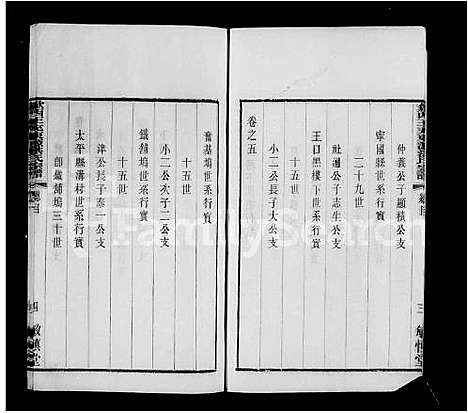 仲義公子顯積公支
寧國縣世系行實
二十九世
社遇公子志生公支
王口黑樓下世系行實
三十世
卷之五
小二公長子大公支
十五世
舊基塢世系行實
小二公次子二公支
十五世
鐵舖塢世系行實
津公長子泰一公支
太平縣溝村世系行實
即鐵舖塢三十世
總目
三
敏慎堂
總目
四
敏慎堂
FamilySearch